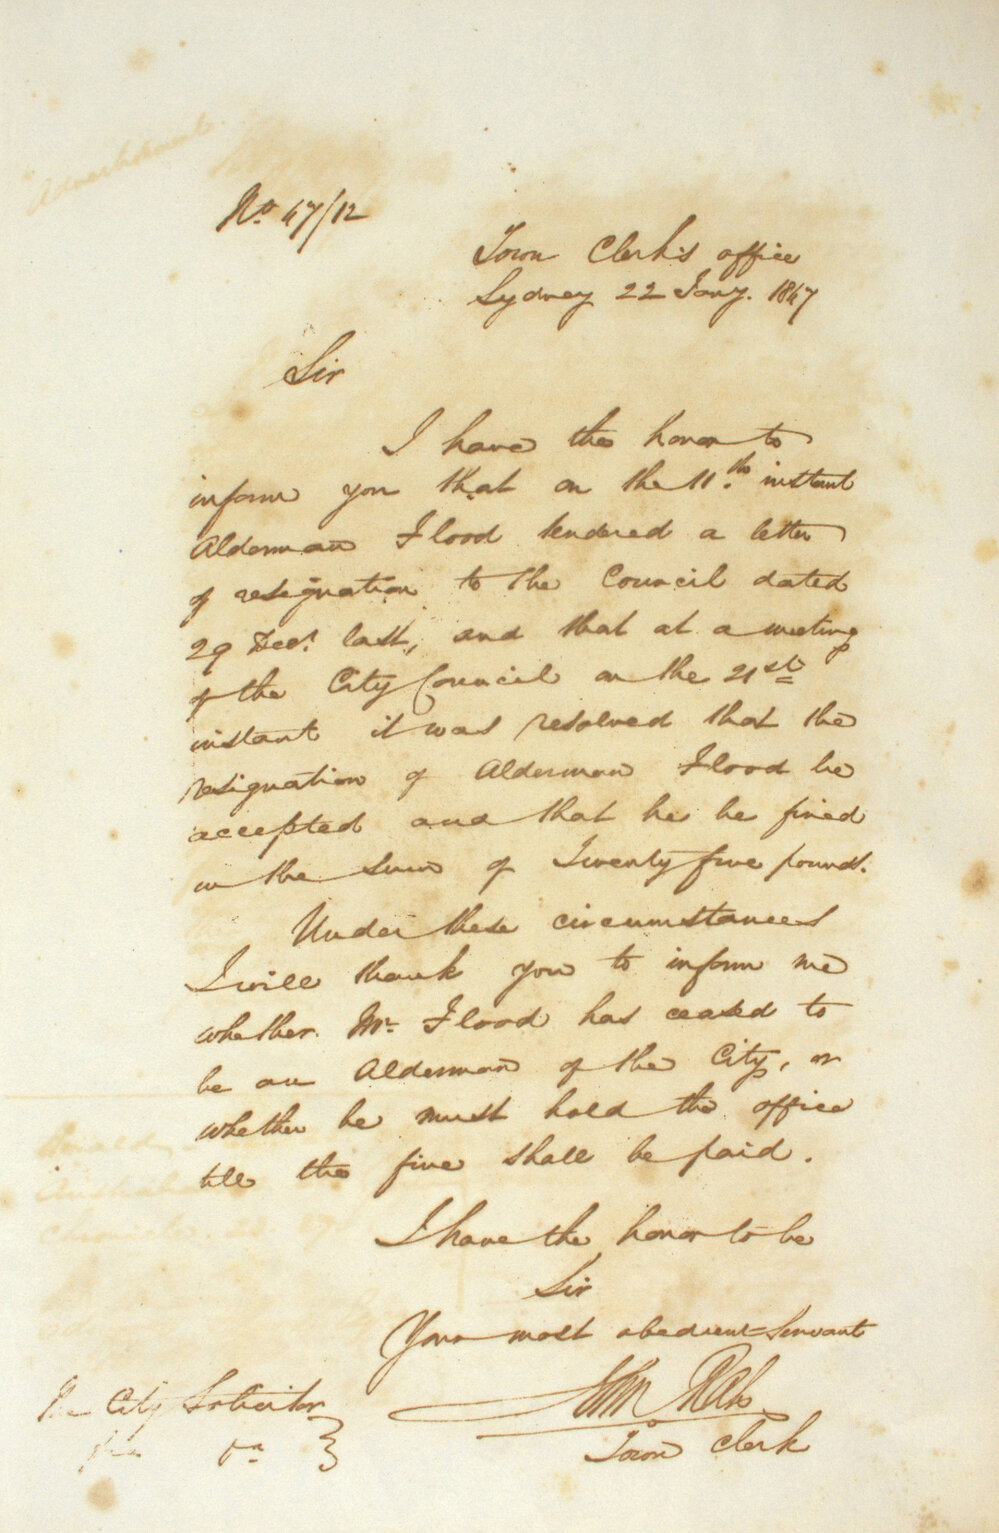 No. 47/12
Town Clerk's office
Sydney 22 Jany. 1847
Sir
I have the honor to
inform you that on the 11.th instant
Alderman Flood tendered a letter
of resignation to the Council dated
29 Decr. last, and that at a meeting
of the City Council on the 21st
instant it was resolved that the
resignation of Alderman Flood be
accepted and that he be fined
in the sum of Twenty five pounds.
Under these circumstances
I will thank you to inform me
whether Mr. Flood has ceased to
be an Alderman of the City, or
whether he must hold the office
till the fine shall be paid.
I have the honor to be
Sir
Your most obedient Servant
John Rae
Town Clerk
The City Solicitor